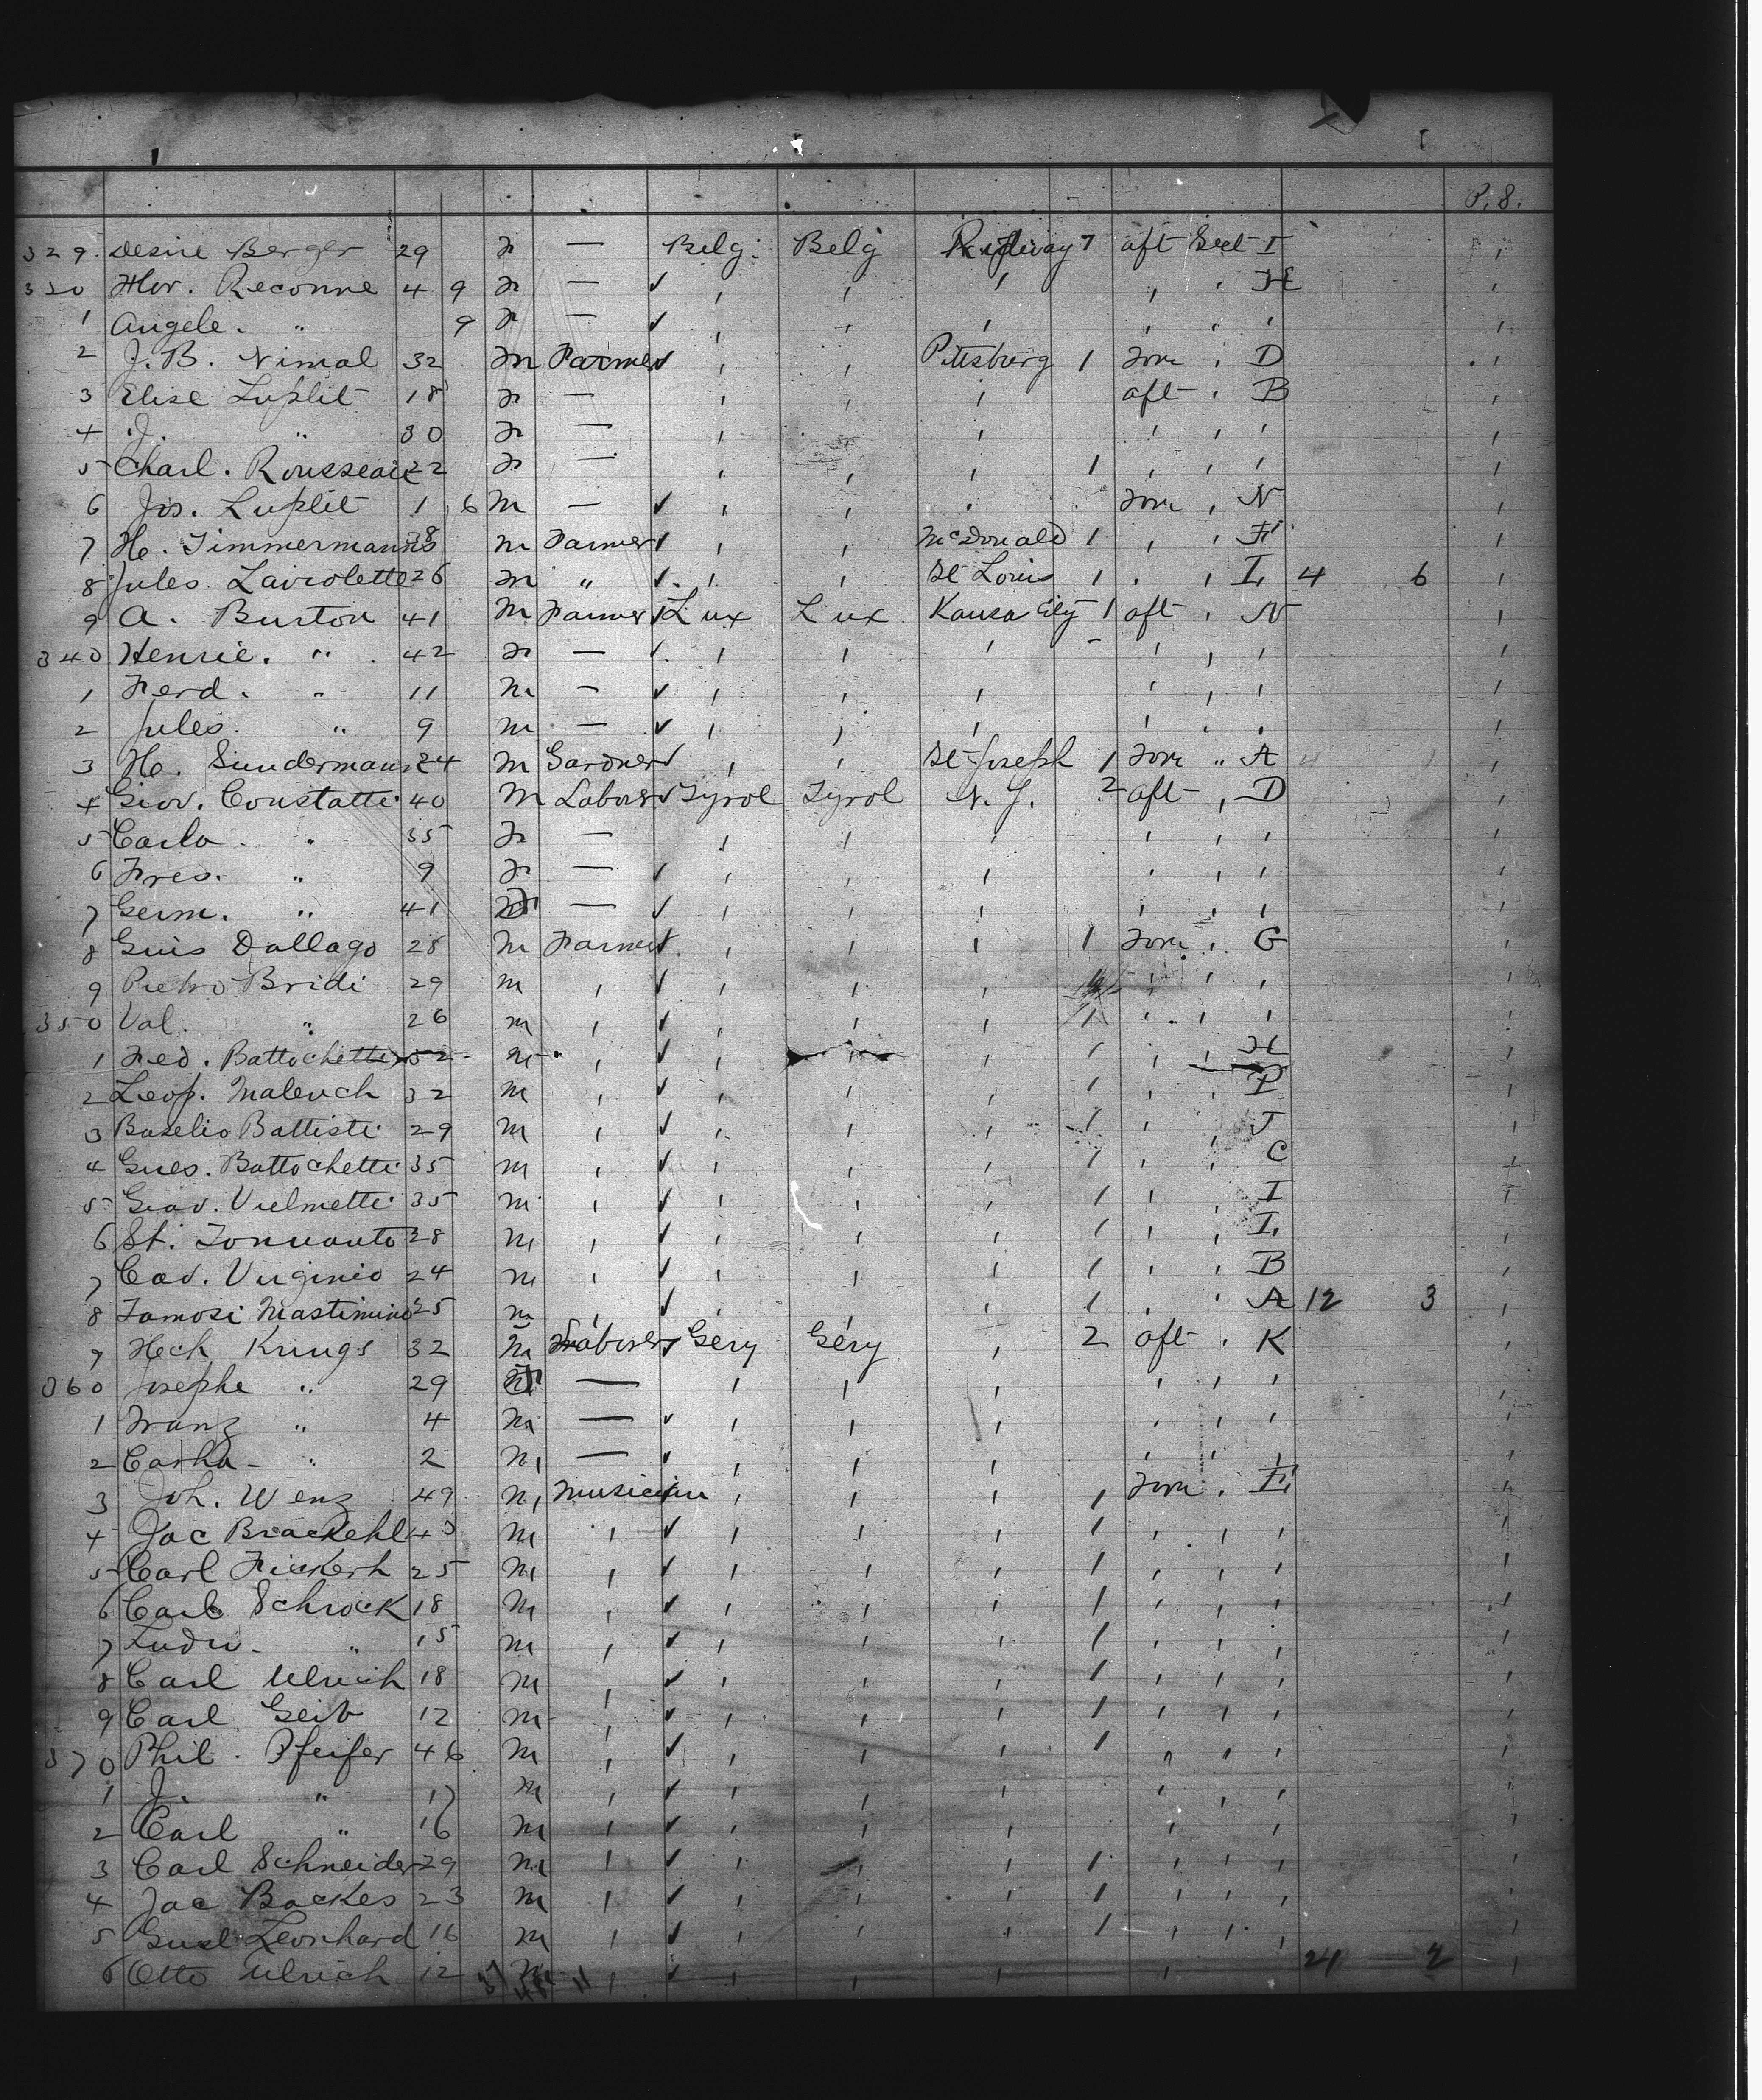 P. 8.
329. Desire Berger 29 f — Belg. Belg Ridgway 1 aft Sect I
330 Hor. Reconne 4 9 f — ✓ , , , , , H
1 Angele. " 9 f — ✓ , , , , , ,
2 J. B. Nimal 32 m Farmer ✓ , , Pittsburg 1 forw , D
3 Elise Luplit 18 f — , , , aft , B
4 J. " 30 f — , , , , , ,
5 Charl. Rousseau 22 f — , , , 1 , , ,
6 Jos. Luplit 1 6 m — ✓ , , , forw , N
7 He. Timmermanns 38 m Farmer , , McDonald 1 , , F
8 Jules Lairolette 26 m " ✓ , , St Louis 1 , , L 4 6
9 A. Burton 41 m Farmer ✓ Lux Lux Kansa City 1 aft , N
340 Henrie. " 42 f — ✓ , , , - , , ,
1 Ferd. " 11 m — ✓ , , , , , ,
2 Jules. " 9 m — ✓ , , , , " ,
3 He. Sundermann 24 m Gardner ✓ , , St Joseph 1 forw " A
4 Giov. Constatti 40 m Laborer ✓ Tyrol Tyrol N. Y. 2 aft , D
5 Carlo. " 35 f — , , , , , ,
6 Fres. " 9 f — ✓ , , , , , ,
7 Germ. " 41 f — ✓ , , , , , ,
8 Guis Dallago 28 m Farmer ✓ , , , 1 forw , G
9 Pietro Bridi 29 m , ✓ , , , , , ,
350 Val. " 26 m , ✓ , , , 1 , , ,
1 Fed. Battochetti 52 m " , ✓ , , , 1 , , H
2 Leop. Malench 32 m , ✓ , , , 1 , , P
3 Baselio Battisti 29 m , ✓ , , , 1 , , J
4 Gues. Battochetti 35 m , ✓ , , , 1 , , C
5 Giov. Vielmetti 35 m , ✓ , , , 1 , , I
6 St. Tonuanto 28 m , ✓ , , , 1 , , L
7 Cav. Virginio 24 m , ✓ , , , 1 , , B
8 Tamosi Mastimino 25 m , ✓ , , , 1 , , A 12 3
9 Hch Krings 32 m Laborer ✓ Gery Gery , 2 aft , K
360 Josephe " 29 f — , , , , , ,
1 Franz " 4 m — ✓ , , , , , ,
2 Cartha " 2 m — ✓ , , , , , ,
3 Joh. Wenz 49 m Musician , , , 1 forw , E
4 Jac Brackehl 43 m , ✓ , , , 1 , , ,
5 Carl Fickert 25 m , ✓ , , , 1 , , ,
6 Carl Schrock 18 m , ✓ , , , 1 , , ,
7 Ludw. " 15 m , ✓ , , , 1 , , ,
8 Carl Ulrich 18 m , ✓ , , , 1 , , ,
9 Carl Geib 12 m , ✓ , , , 1 , , ,
370 Phil. Pfeifer 46 m , ✓ , , , 1 , , ,
1 J. " 17 m , ✓ , , , , , ,
2 Carl " 16 m , ✓ , , , , ,
3 Carl Schneider 29 m , ✓ , , , 1 , , ,
4 Jac Backes 23 m , ✓ , , , 1 , , ,
5 Gust Leonhard 16 m , ✓ , , , 1 , , ,
6 Otto Ulrich 12 m , ✓ , , , , 21 2